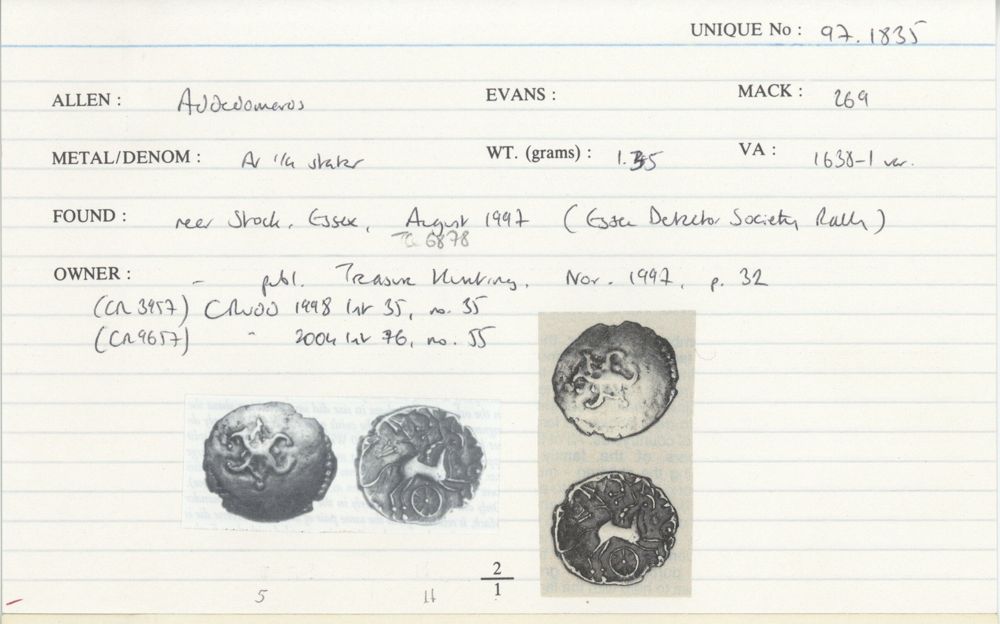 UNIQUE No : 97.1835
ALLEN : Addedomaros EVANS : MACK : 269
METAL/DENOM : Av 1/4 stater WT. (grams) : 1.35 VA : 1638-1 var.
FOUND : near Stock, Essex, August 1997 (Essex Detector Society Rally)
6878
OWNER : - publ. Treasure Hunting, Nov. 1997, p. 32
(CR 3957) 1998 35, no. 35
(CR 9657) " 2004 76, no. 55
2
1
5 11